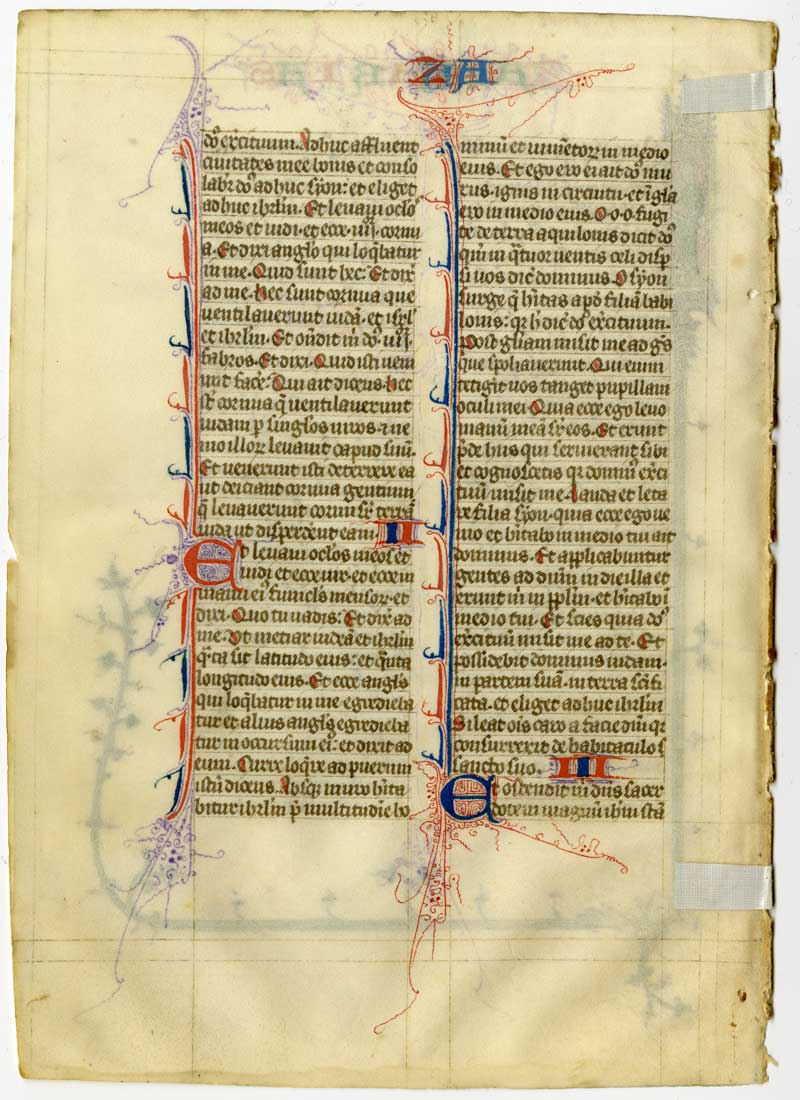 ZA
do᷒ exc̄ituum. Adhuc affluent
ciuitates mee bonis et conso
labr̄ do᷒ adhuc syon: et eliget
adhuc ihrlm̄. Et leuaui oclo᷒
meos et uidi et ecce .iiij. cornu
a. Et dixi anglo qui loq̄batur
in me. Quid sunt hec. Et dix̄
ad me. Hec sunt cornua que
uentilauerunt iudā. et isrl̄
et ihrlm̄. Et on̄dit m̄ do᷒ .iiij.
fabros. Et dixi. Quid isti ueni
unt facē. Qui ait dicens. Hec
st̄ cornua q̄ uentilauerunt
iudam p singlos uiros. ⁊ ne
mo illor leuauit capud suū.
Et uenerunt isti deterrere ea
ut deiciant cornua gentium
q̄ leuauerunt cornu sr̄ terrā
iuda ut disperderent eam. II
Et leuaui oclos meos et
uidi et ecce uir. et ecce in
manu ei᷒ funicls mensor. et
dixi. Quo tu uadis. Et dix̄ ad
me. Ut metiar iudeā et ihrlm̄
q̄ta sit latitudo eius: et q̄nta
longitudo eius. Et ecce angls
qui loq̄batur in me egredieba
tur et alius angls egredieba
tur in occursum ei᷒: et dixit ad
eum. Curre loq̄re ad puerum
istū dicens. Absq᷒ muro hita
bitur ihrlm̄ p̄ multitudīe ho
minū et iumētorꝝ in medio
eius. Et ego ero ei ait do᷒ mu
rus. ignis in circuitu. et ī glā
ero in medio eius. O. o. o. fugi
te de terra aquilonis dicit do᷒
qm̄ in q̄tuor uentis celi dispsi
si uos dic̄ dominus. O syon
surge q̄ hitas apd̄ filiā babi
lonis: qr h̄ dic̄ do᷒ exc̄ituum.
Post gliam misit me ad gē᷒
que spoliauerunt. Qui enim
tetigit uos tanget pupillam
oculi mei. Quia ecce ego leuo
manū meā sr̄ eos. Et erunt
p̄de hus qui seruierant sibi
et cognoscetis qr domin᷒ exci
tuū misit me. Lauda et leta
re filia syon. quia ecce ego ue
nio et hitabo in medio tui ait
dominus. Et applicabuntur
gentes ad dnm̄ in die illa et
erunt m̄ in pplm̄. et hitabo ī
medio tui. Et scies quia do᷒
exc̄ituū misit me ad te. Et
possidebit dominus iudam.
in partem suā. in terra sc̄ifi
cata. et eliget adhuc ihrlm̄
Sileat ois caro a facie dni qr
consurrexit de habitaculo s
sancto suo. III
Et ostendit m̄ dns sacer
dotem magnū ihm̄ stā